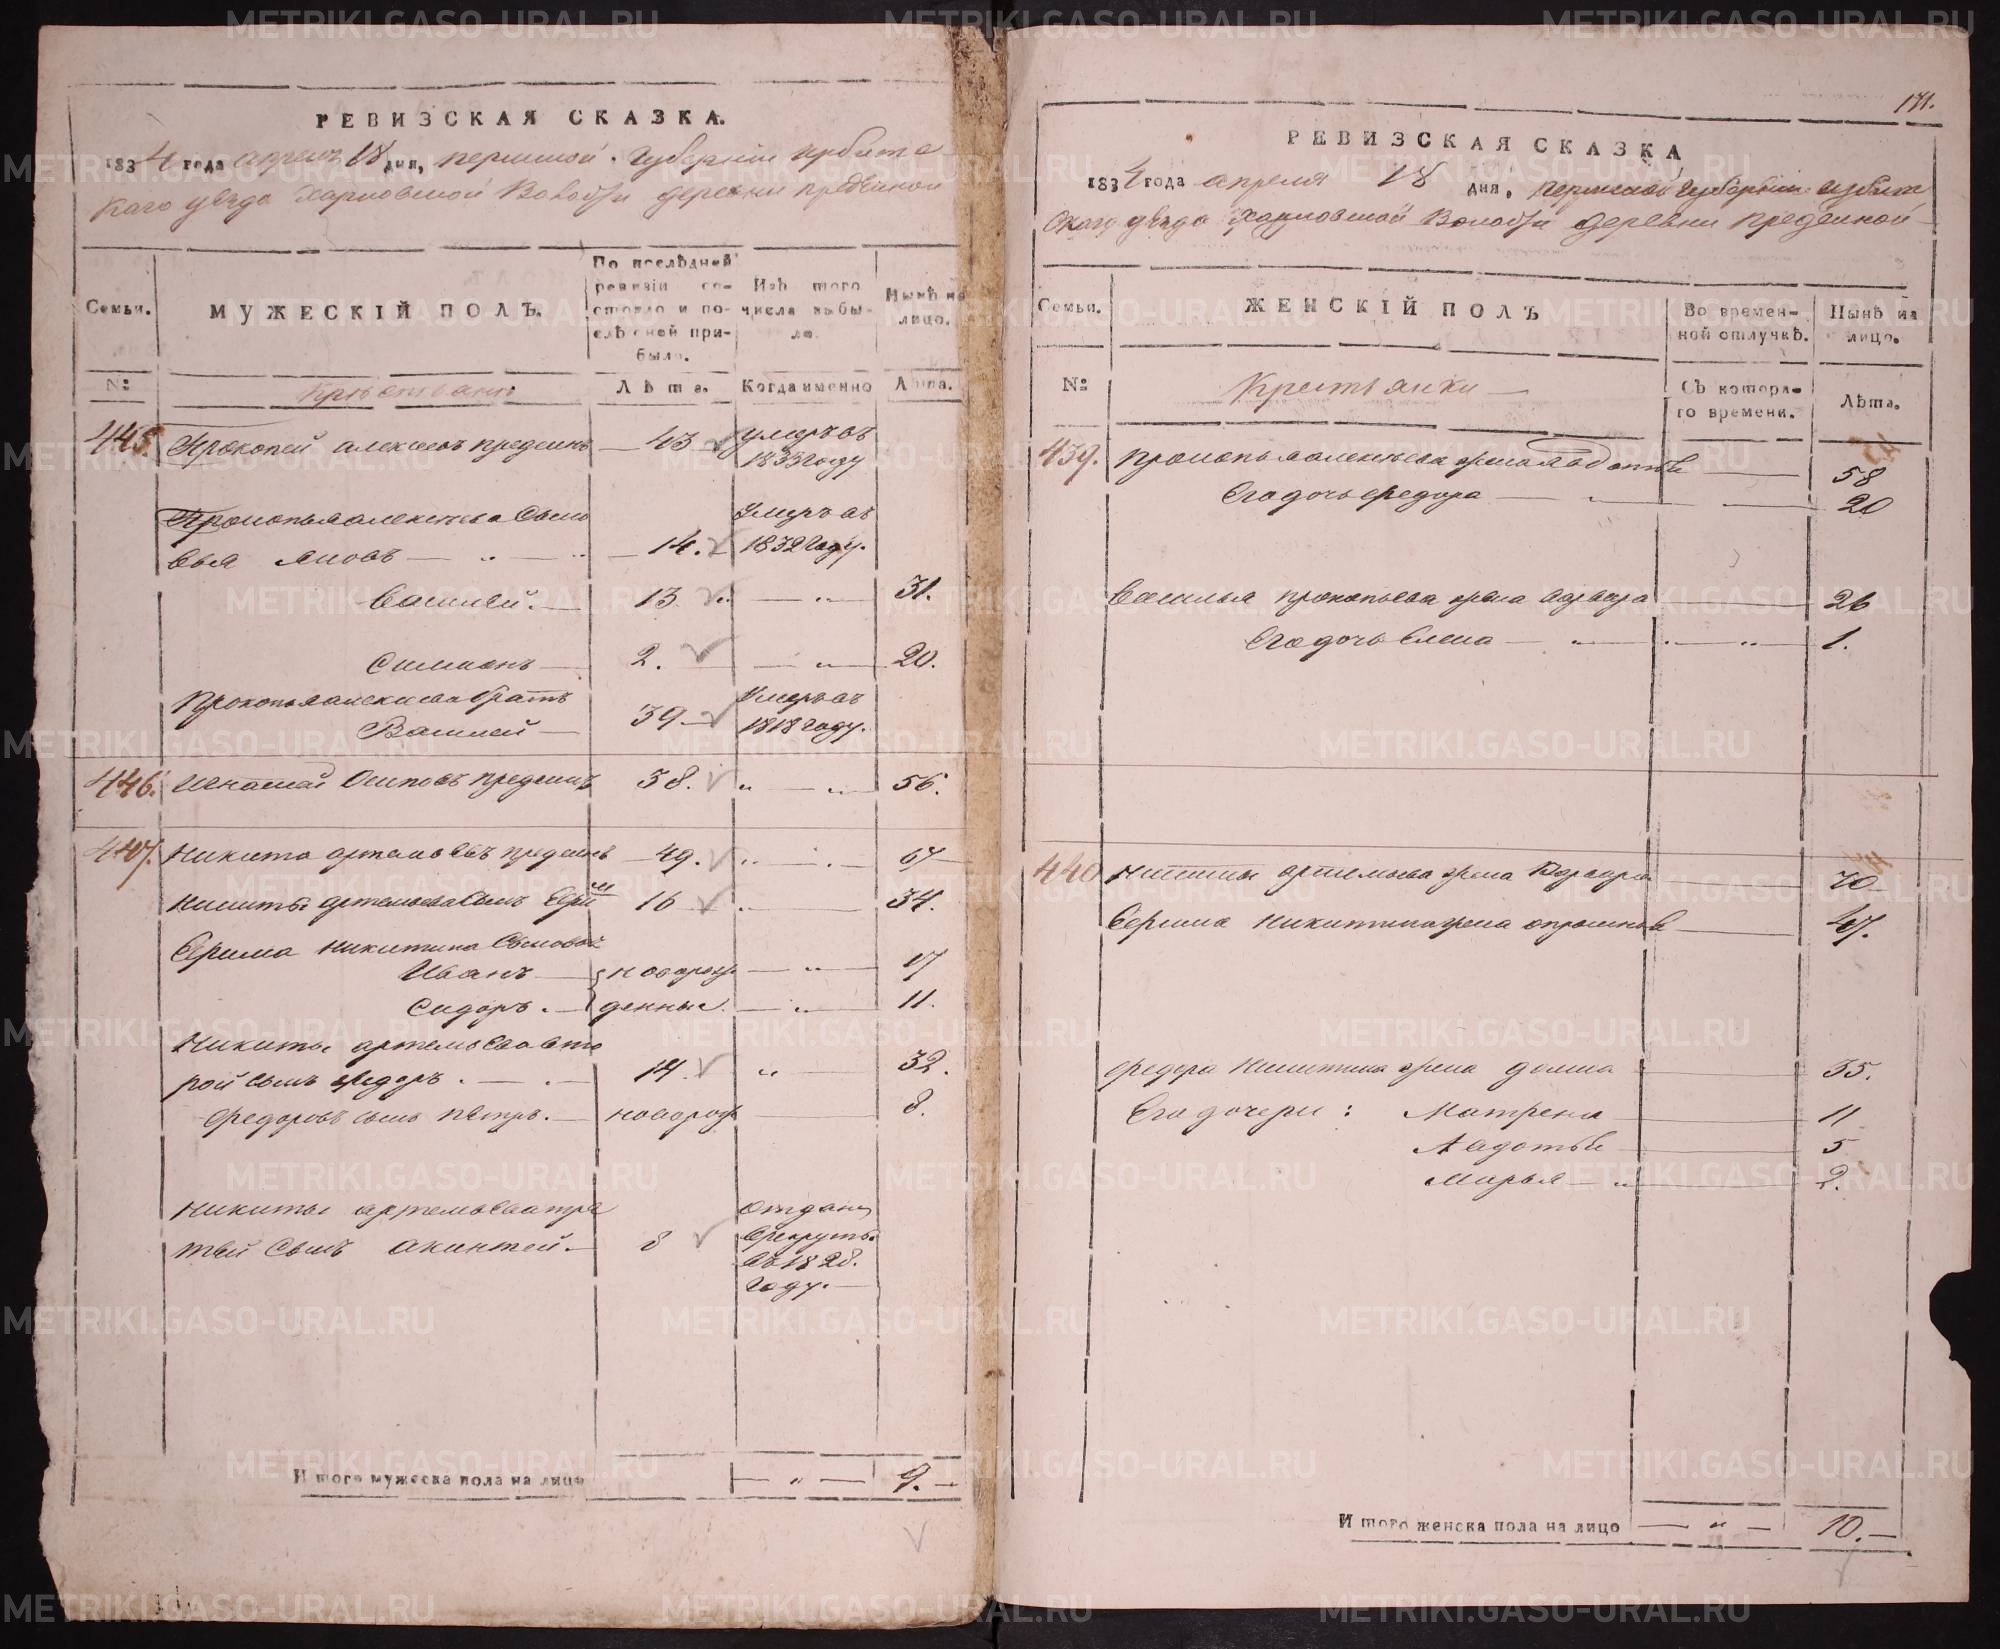 РЕВИЗСКАЯ СКАЗКА.
1834 года апреля 18 дня, пермской губернии ирбитс
каго уезда Харловской Волости деревни предеиной
Семьи.
МУЖЕСКІЙ ПОЛЪ.
По послѣдней ревизіи состояло и послѣ оной прибыло.
Изъ того числа выбыло.
Нынѣ на лицо.
№
Крестьяне
Лѣта.
Когда именно
Лѣта.
445. Прокопей алексеевъ предеинъ 43 умеръ въ 1833 году
Прокопья алексеева сыно
вья яковъ 14. Умеръ въ 1832 году.
Василей. 13 31.
Симионъ 2. 20.
Прокопья алексеева братъ
Василей 39. Умеръ въ 1818 году.
446. Игнатей Осиповъ предеинъ 38. 56.
447. Никита артемьевъ предеинъ 49. 67
Никиты артемьева сынъ Ефим 16 34.
Ефима никитина сыновья
Иванъ новорож 17
Сидоръ. денные. 11.
Никиты артемьева вто
рой сынъ федоръ. 14. 32.
Федоровъ сынъ петръ. новорож 8.
Никиты артемьева тре
тей сынъ акинтей. 8 отданъ в рекруты въ 1828. году.
Итого мужеска пола на лицо 9.
171.
РЕВИЗСКАЯ СКАЗКА
1834 года апреля 18 дня, пермской губернии ирбит
скаго уезда Харловской Волости деревни предеиной
Семьи.
ЖЕНСКІЙ ПОЛЪ
Во временной отлучкѣ.
Нынѣ на лицо.
№
Крестьянки
Съ котораго времени.
Лѣта.
439. Прокопья алексеева жена авдотья 58
Его дочь федора 20
Василья прокопьева жена варвара 26
Его дочь Елена 1.
440 Никиты артемьева жена Варвара 70
Ефима никитина жена 47.
федора никитина жена домна 35.
Его дочери: Матрена 11
Авдотья 5
Марья 2.
Итого женска пола на лицо 10.
METRIKI.GASO-URAL.RU